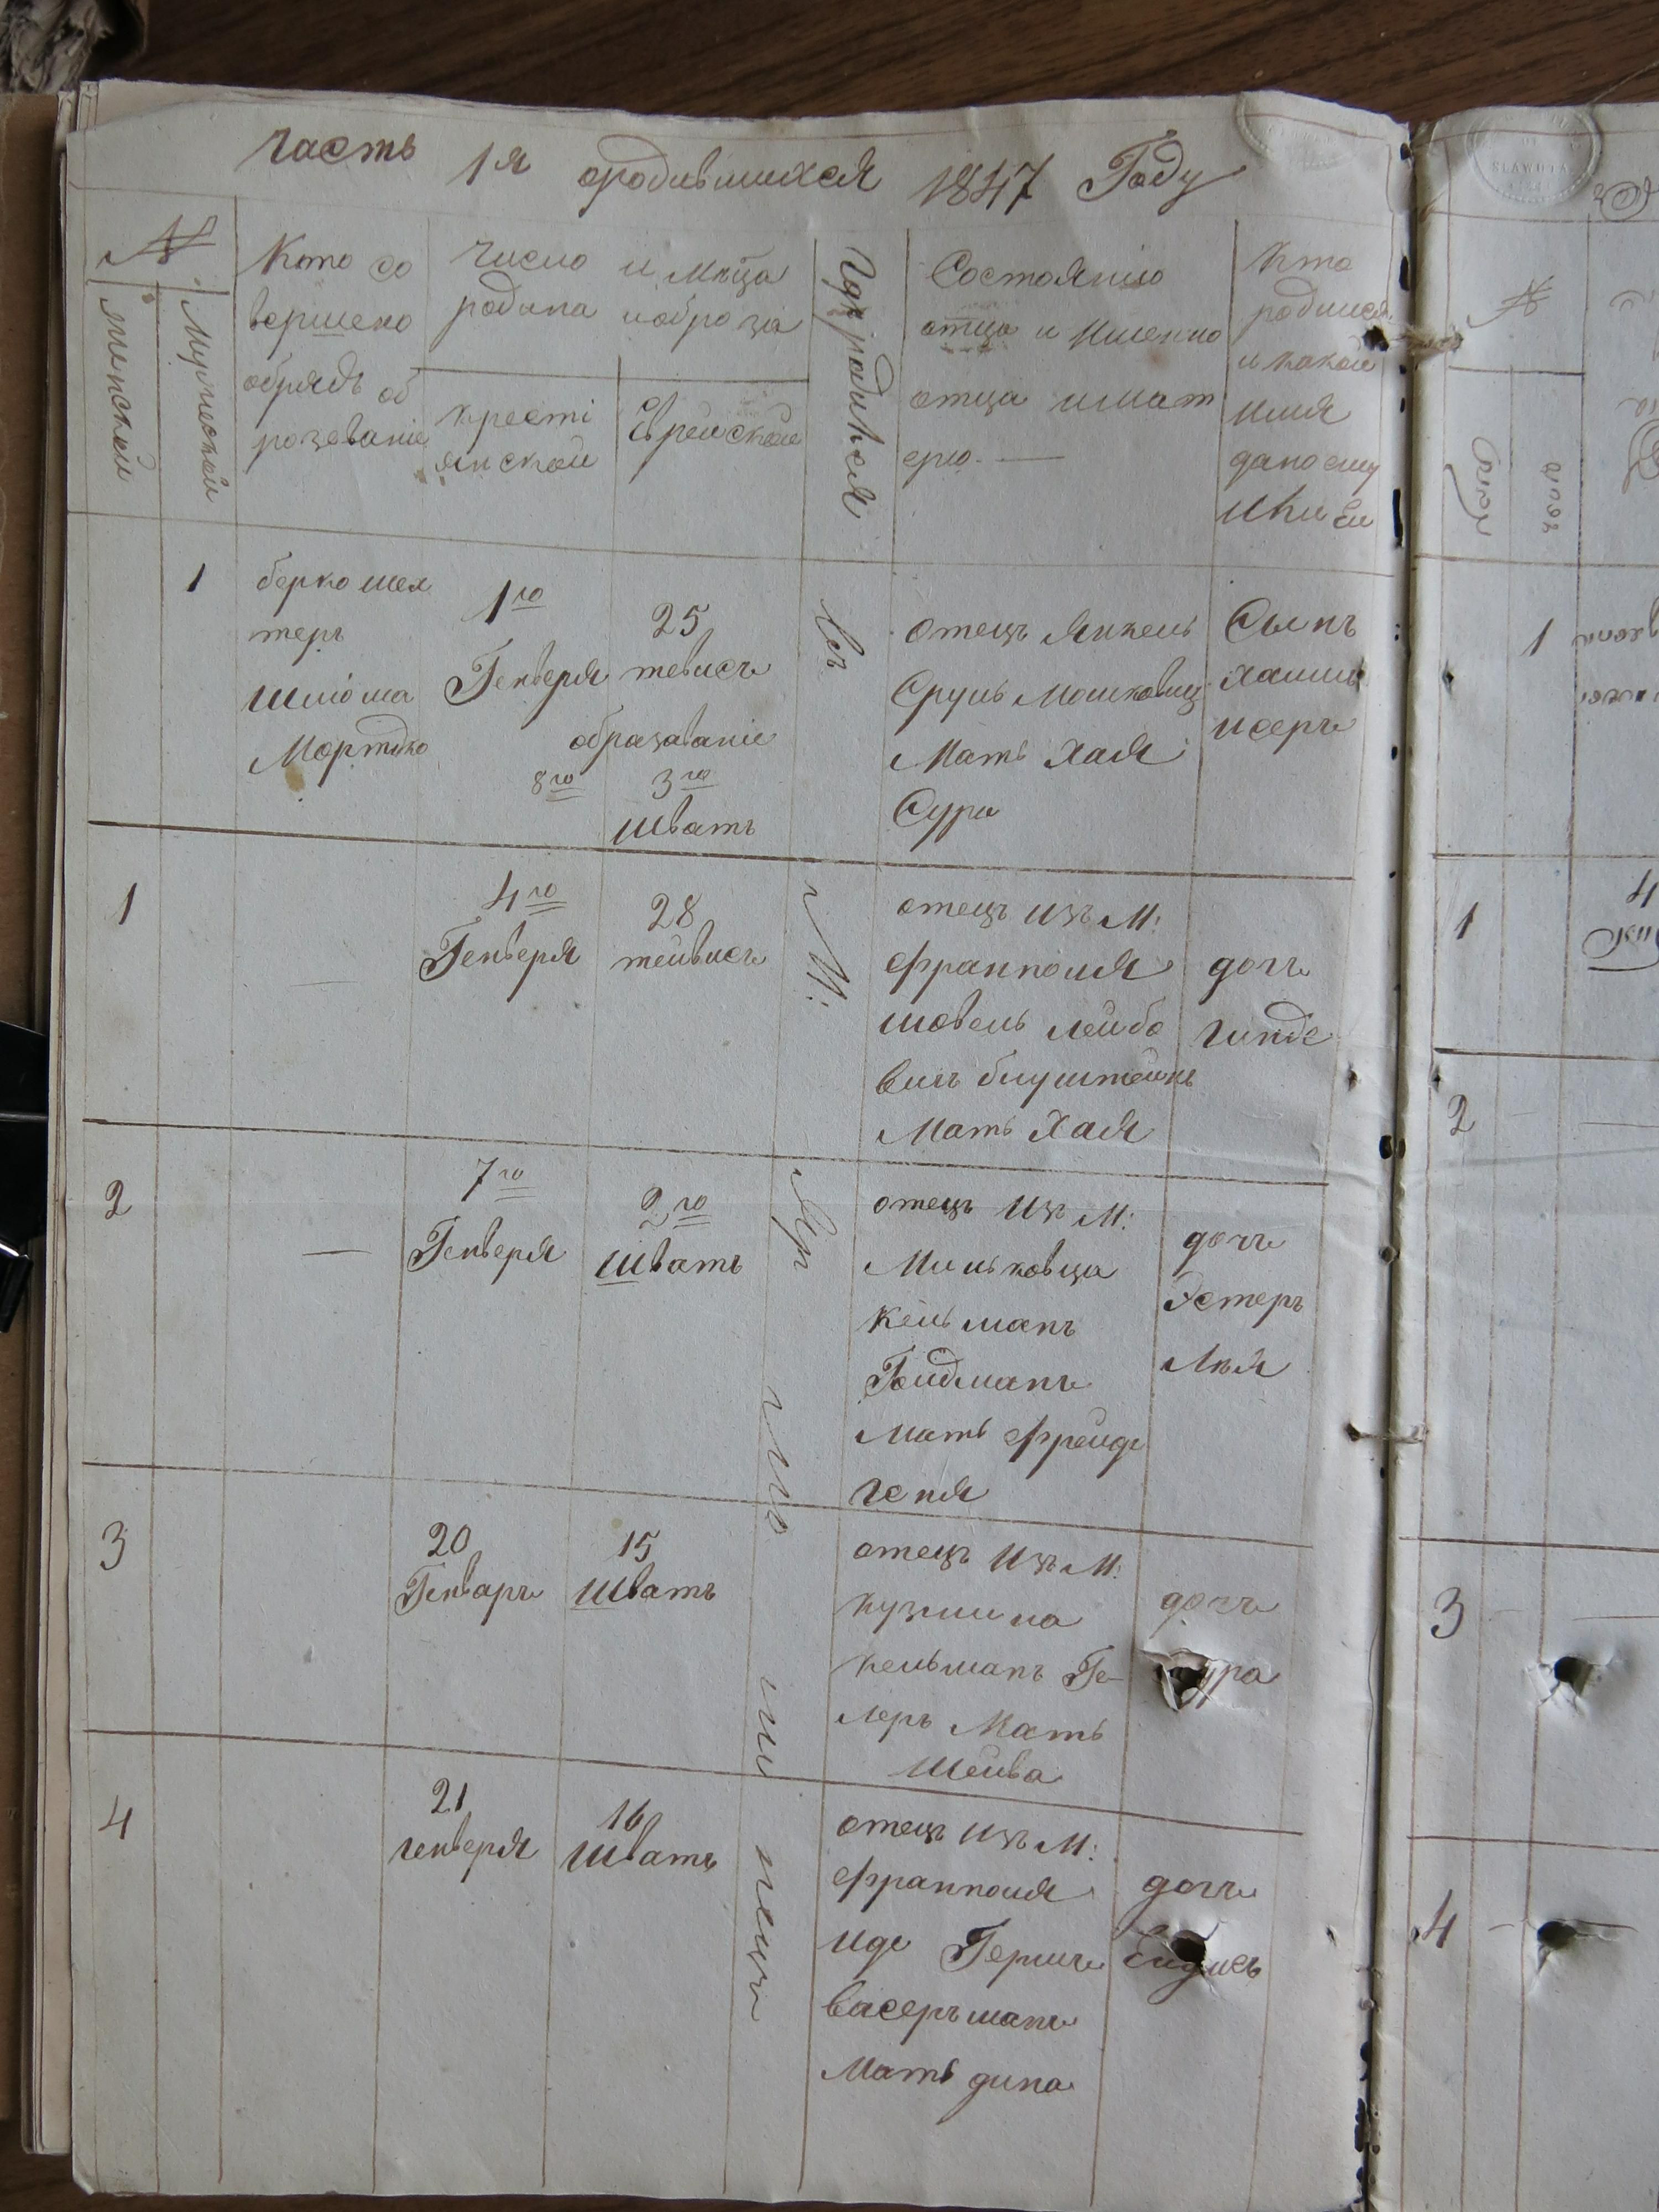 Часть 1я ородившихся 1847 Году
№
женской
Мужеской
Кто со
вершено
обрядъ об
розованіе
Число и Мѣца
родина и обро за
Крести
янской
Еврейской
Где родился
Состояніло
отца и Именно
отца и мат
ерю. —
Кто
родился
и какои
имя
дано ему
или Ей
1
берко шех
теръ
Шлюма
Мортко
1го
Генверя
25
тевисъ
образованіе
8го
3го
Шватъ
Въ
отецъ Янкель
Сруль Мошковиц
Мать Хая
Сура
Сынъ
Хаимъ
исеръ
1
—
4го
Генверя
28
тейвисъ
М:
отецъ изъ М:
Франполя
шовель лейбо
вичъ блуштейнъ
Мать Хая
дочъ
Гинде
2
—
7го
Генверя
2го
Шватъ
Яр
отецъ изъ М:
Миньковца
Кельманъ
Гоидманъ
Мать Фрейде
Геня
дочъ
Эстеръ
Лея
3
20
Генваръ
15
Шватъ
отецъ изъ М:
Кузмина
Кельманъ Ге-
леръ Мать
Шейва
дочъ
4
21
генверя
16
Шватъ
отецъ изъ М:
Франполя
Иде Гершъ
васерманъ
Мать дина
дочъ
SLAWUTA
№
1
1
2
3
4